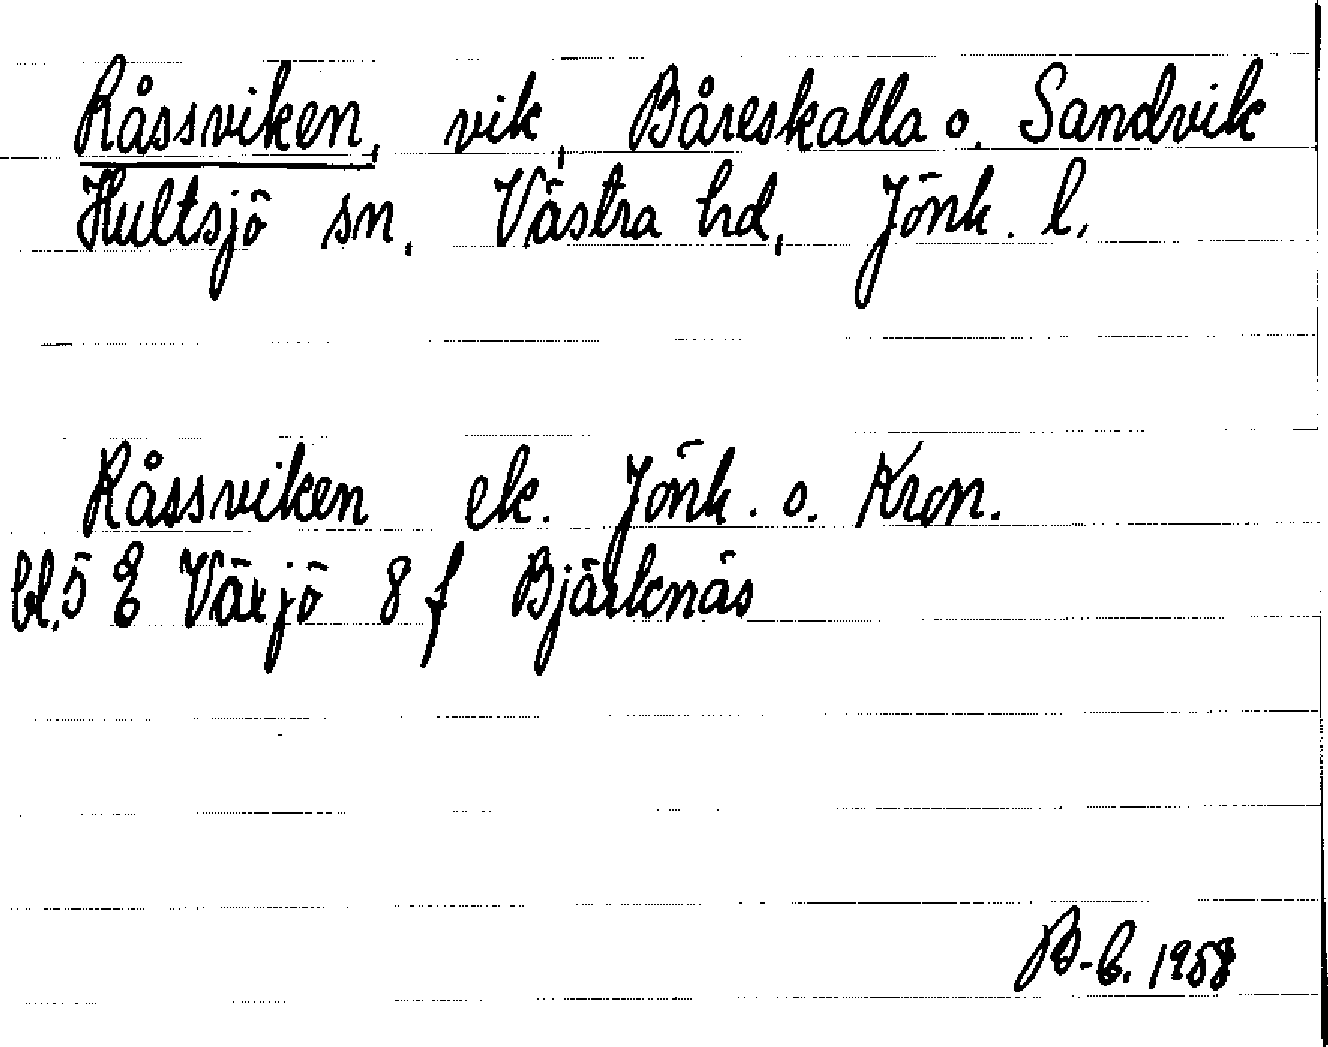 Råssviken, vik, Båreskalla o. Sandvik
Hultsjö sn, Västra hd, Jönk. l.
Råssviken ek. Jönk. o. Kron.
bl. 5 E Växjö 8 f Bjärknäs
B-b. 1958